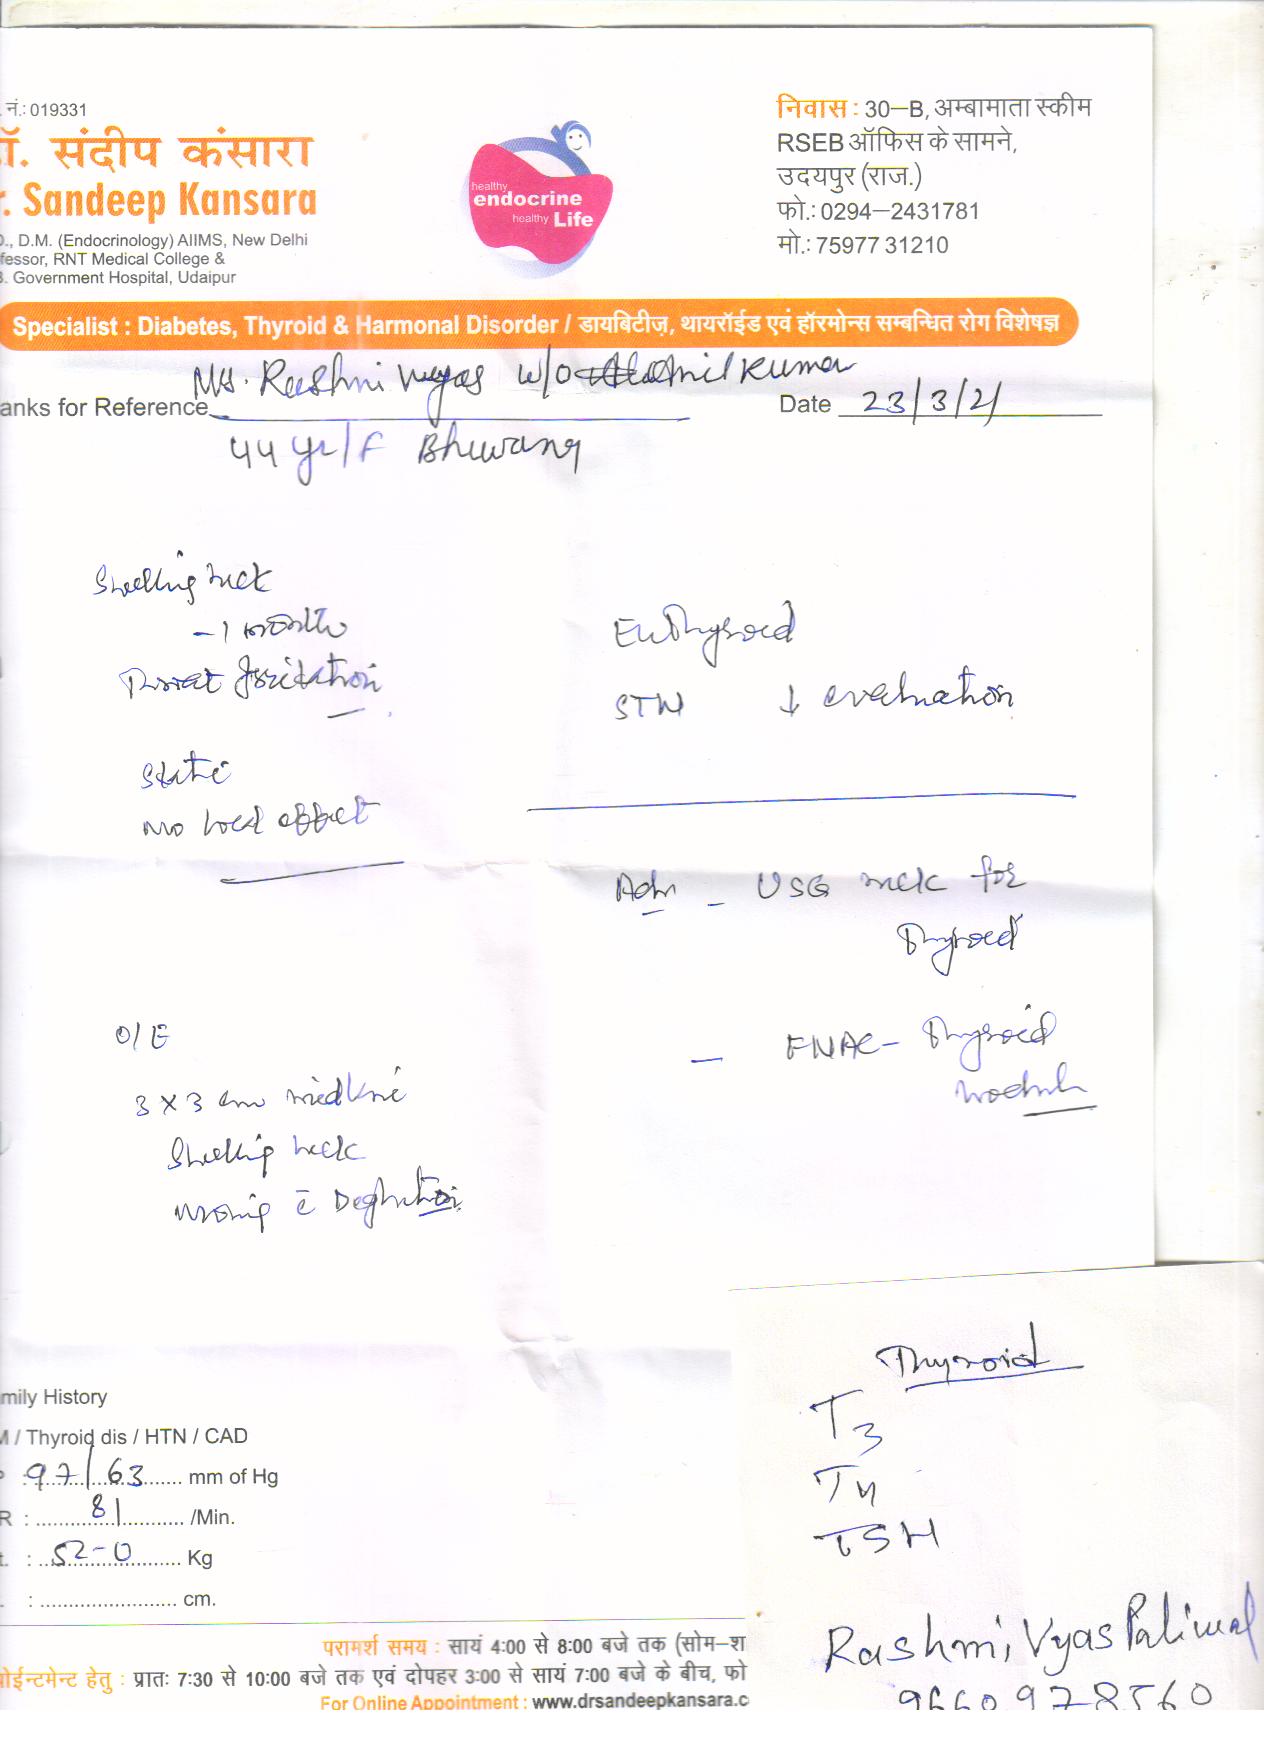 . नं.: 019331
ॉ. संदीप कंसारा
r. Sandeep Kansara
D., D.M. (Endocrinology) AIIMS, New Delhi
fessor, RNT Medical College &
B. Government Hospital, Udaipur
healthy
endocrine
healthy Life
निवास : 30–B, अम्बामाता स्कीम
RSEB ऑफिस के सामने,
उदयपुर (राज.)
फो.: 0294–2431781
मो.: 75977 31210
Specialist : Diabetes, Thyroid & Harmonal Disorder / डायबिटीज़, थायरॉईड एवं हॉरमोन्स सम्बन्धित रोग विशेषज्ञ
Rashmi Vyas w/o Anil Kumar
anks for Reference
Date 23/3/21
44 yr/F Bhuwana
Swelling neck
- 1 month
Throat Irritation
Static
no local effect
Euthyroid
STN ↓ evaluation
Adv - USG neck for
Thyroid
- FNAC - Thyroid
nodule
O/E
3 x 3 cm midline
Swelling neck
moving c̄ Deglutition
mily History
M / Thyroid dis / HTN / CAD
P : 97/63 mm of Hg
R : 81 /Min.
t. : 52-0 Kg
. : ........................ cm.
परामर्श समय : सायं 4:00 से 8:00 बजे तक (सोम–श
पोईन्टमेन्ट हेतु : प्रातः 7:30 से 10:00 बजे तक एवं दोपहर 3:00 से सायं 7:00 बजे के बीच, फो
For Online Appointment : www.drsandeepkansara.c
Thyroid
T3
T4
TSH
Rashmi Vyas Paliwal
9660978560